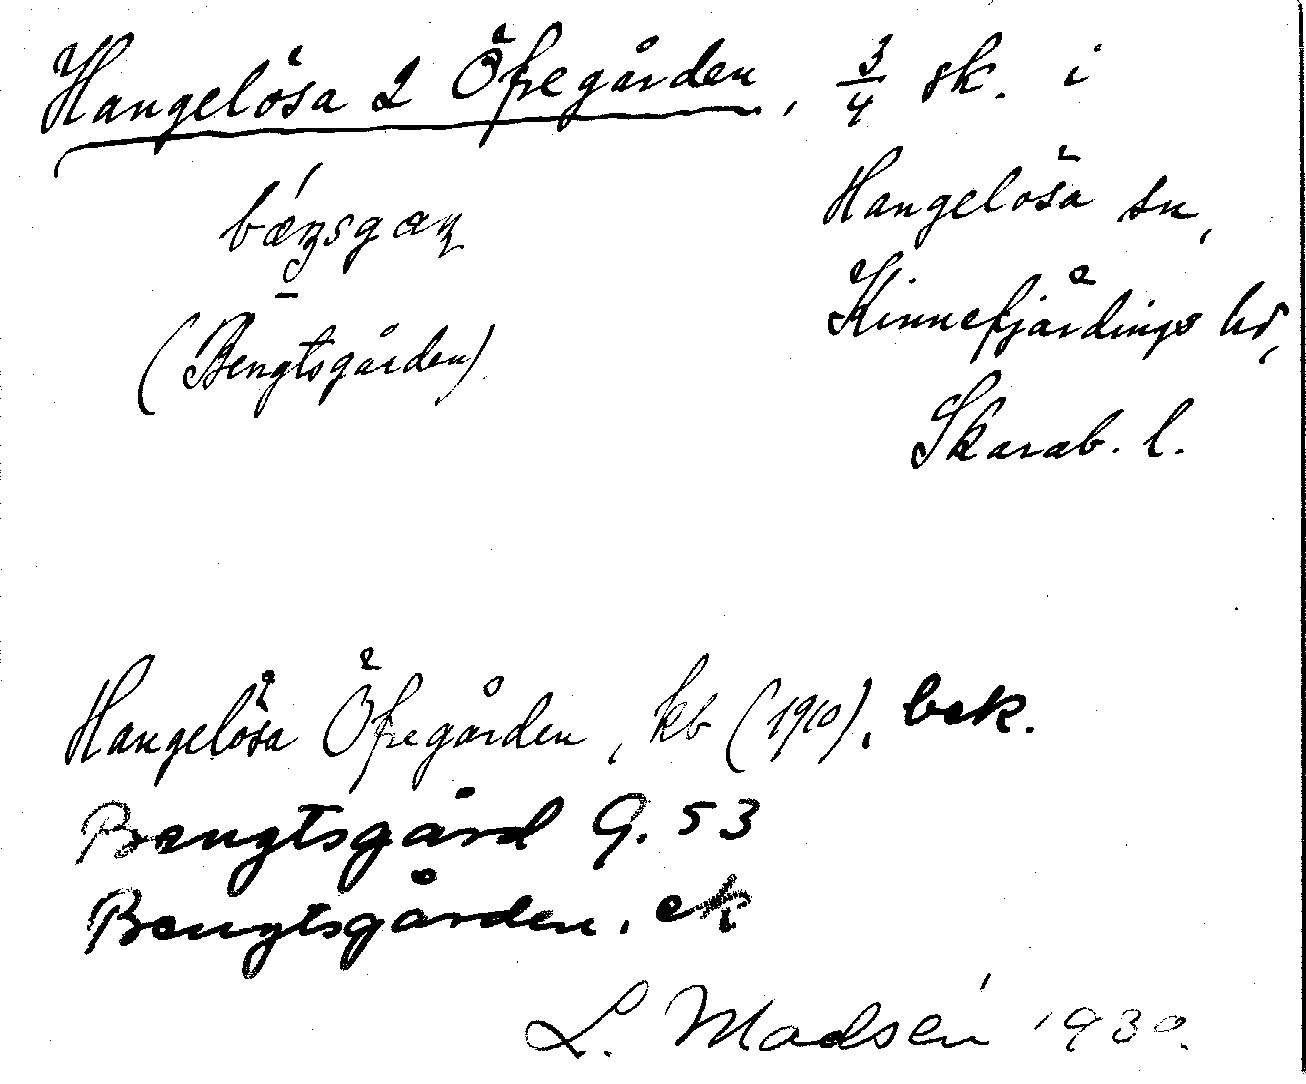 Hangelösa 2 Öfregården, 3/4 sk. i
Hangelösa sn,
Kinnefjärdings hd,
Skarab. l.
(Bengtsgården)
Hangelösa Öfregården, kb (1910), bek.
Bengtsgård G. 53
Bengtsgården, ek
L. Madsén 1930.